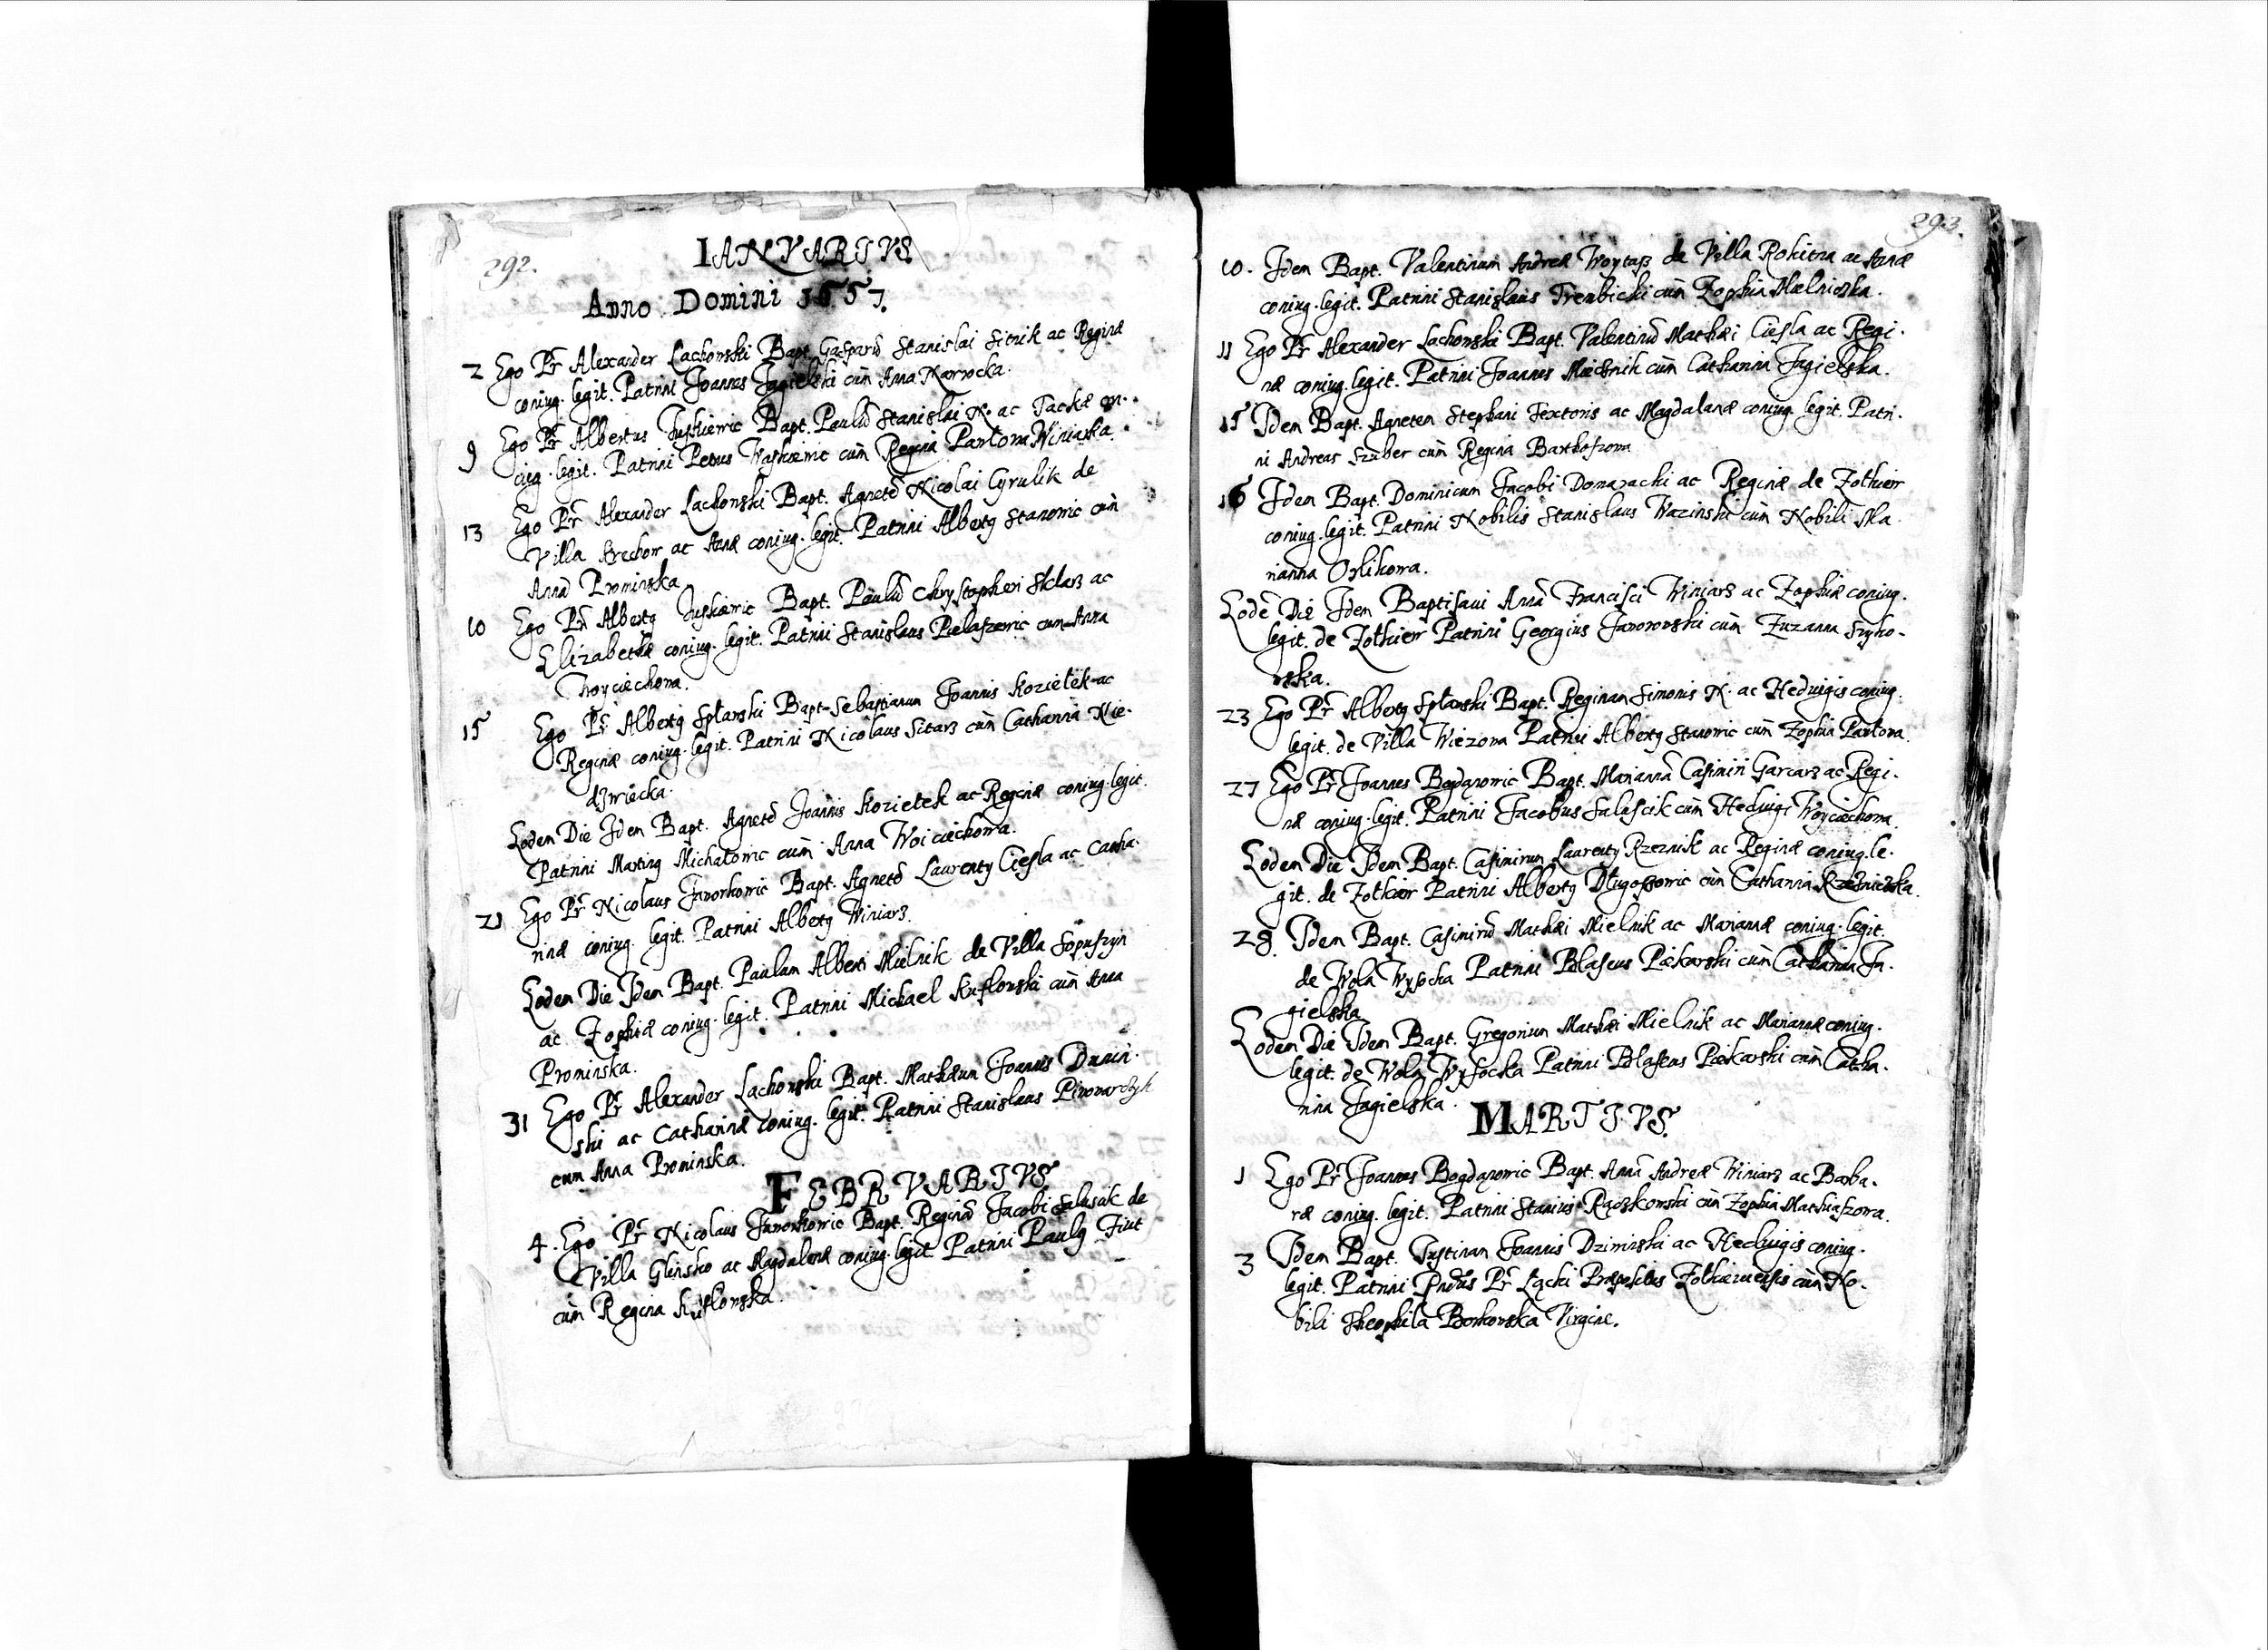 292.
IANVARIVS
Anno Domini 1657.
2 Ego Pr Alexander Lachowski Bapt. Gasparū Stanislai Sitnik ac Reginæ
coniug. legit. Patrini Joannes Jagielski cum Anna Nawrocka.
9 Ego Pr Albertus Juskiewic Bapt. Paulū Stanislai N. ac Jackæ con.
iug. legit. Patrini Petrus Waskiewic cum Regina Pawlowa Winiarka.
13 Ego Pr Alexander Lachowski Bapt. Agnetē Nicolai Cyrulik de
Villa ac Annæ coniug. legit. Patrini Albertq Stanowic cum
Anna Prowinska
10 Ego Pr Albertq Juskiewic Bapt. Paulū Chrystopheri Sklarz ac
Elizabethæ coniug. legit. Patrini Stanislaus Pielaszewic cum Anna
Woyciechowa.
15 Ego Pr Albertq Splawski Bapt. Sebastianum Joannis Kozielek ac
Reginæ coniug. legit. Patrini Nicolaus Sitarz cum Catharina Nie-
dzwiecka.
Eodem Die Idem Bapt. Agnetē Joannis Kozielek ac Reginæ coniug. legit.
Patrini Martinq Michalowic cum Anna Woiciechowa.
21 Ego Pr Nicolaus Jaworkowic Bapt. Agnetē Laurenty Ciesla ac Catha-
rinæ coniug. legit. Patrini Albertq Winiarz.
Eodem Die Idem Bapt. Paulum Alberti Mielnik de Villa Sopuszyn
ac Zophiæ coniug. legit. Patrini Michael Kuflowski cum Anna
Prowinska.
31 Ego Pr Alexander Lachowski Bapt. Mathæum Joannis Dunin-
ski ac Catharinæ coniug. legit. Patrini Stanislaus Piwowarczyk
cum Anna Prowinska.
FEBRVARIVS
4. Ego Pr Nicolaus Jaworkowic Bapt. Reginā Jacobi Salusik de
Villa Glinsko ac Magdalenæ coniug. legit Patrini Paulq Fiut
cum Regina Kuflowska.
293.
10. Idem Bapt. Valentinum Andreæ Woytass de Villa Rokitna ac Annæ
coniug. legit. Patrini Stanislaus Trembicki cum Zophia Mielniczka.
11 Ego Pr Alexander Lachowski Bapt. Valentinū Mathæi Ciesla ac Regi-
næ coniug. legit. Patrini Joannes Miecznik cum Catharina Jagielska.
15 Idem Bapt. Agnetem Stephani Textoris ac Magdalenæ coniug. legit. Patri-
ni Andreas Szuber cum Regina Barthoszowa
16 Idem Bapt. Dominicum Jacobi Domaracki ac Reginæ de Zolkiew
coniug. legit. Patrini Nobilis Stanislaus Wazinski cum Nobili Ma-
rianna Orlikowa.
Eodē Die Idem Baptisaui Annā Francisci Winiarz ac Zophiæ coniug.
legit. de Zolkiew Patrini Georgius Jaworowski cum Zuzanna Szyko-
wska.
23 Ego Pr Albertq Splawski Bapt. Reginam Simonis N. ac Hedvigis coniug.
legit. de Villa Wiezowa Patrini Albertq Stanowic cum Zophia Pawlowa.
27 Ego Pr Joannes Bogdanowic Bapt. Mariannā Casimiri Garcarz ac Regi-
næ coniug. legit. Patrini Jacobus Salescik cum Hedvigi Woyciechowa.
Eodem Die Idem Bapt. Casimirum Laurenty Rzeznik ac Reginæ coniug. le-
git. de Zolkiew Patrini Albertq Dlugoszowic cum Catharina Rzezniczka.
28. Idem Bapt. Casimirū Mathæi Mielnik ac Mariannæ coniug. legit.
de Wola Wysocka Patrini Blaseus Piekarski cum Catharina Ja-
gielska
Eodem Die Idem Bapt. Gregorium Mathæi Mielnik ac Mariannæ coniug.
legit. de Wola Wysocka Patrini Blaseus Piekarski cum Catha-
rina Jagielska.
MARTIVS.
1 Ego Pr Joannes Bogdanowic Bapt. Annā Andreæ Winiarz ac Barba-
ræ coniug. legit. Patrini Raczkowski cum Zophia Mathiaszowa.
3 Idem Bapt. Justinam Joannis Dziwinski ac Hedvigis coniug.
legit. Patrini Pr Łącki Præpositus Zolkieuensis cum No-
bili Theophila Borkowska Virgine.